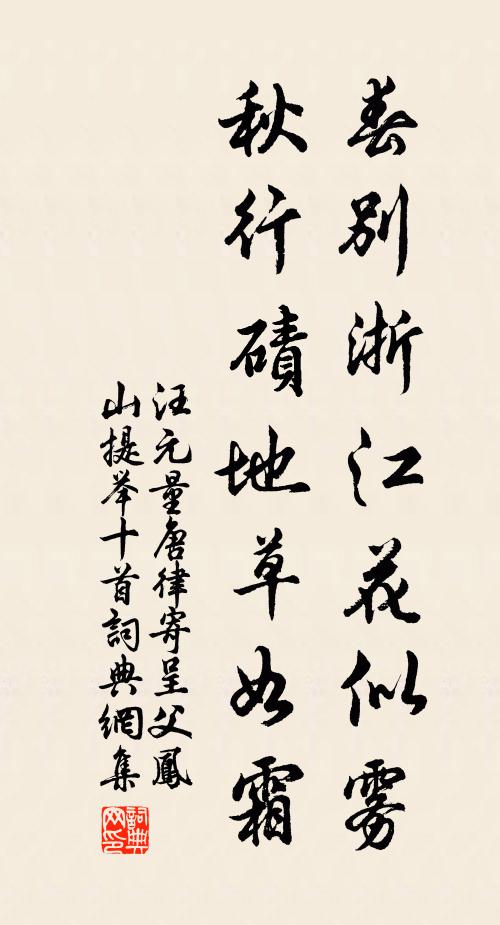 春别浙江花似雾
秋行碛地草如霜
汪元量唐律寄呈父鳳
山提举十首詞典網集
詞典
网印